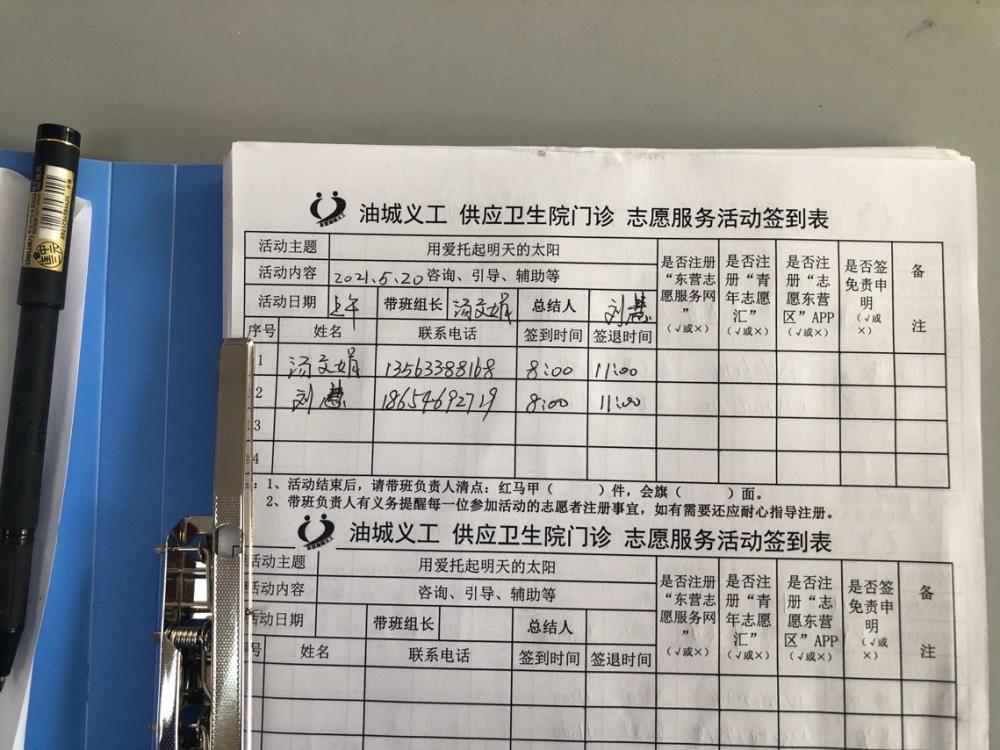 油城义工 供应卫生院门诊 志愿服务活动签到表
活动主题 用爱托起明天的太阳 是否注册“东营志愿服务网”（√或×） 是否注册“青年志愿汇”（√或×） 是否注册“志愿东营区”APP（√或×） 是否签免责申明（√或×） 备注
活动内容 2021.5.20 咨询、引导、辅助等
活动日期 上午 带班组长 汤文娟 总结人 刘慧
序号 姓名 联系电话 签到时间 签退时间
1 汤文娟 13563388168 8:00 11:00
2 刘慧 18654692719 8:00 11:00
3
4
：1、活动结束后，请带班负责人清点：红马甲（ ）件，会旗（ ）面。
2、带班负责人有义务提醒每一位参加活动的志愿者注册事宜，如有需要还应耐心指导注册。
油城义工 供应卫生院门诊 志愿服务活动签到表
活动主题 用爱托起明天的太阳 是否注册“东营志愿服务网”（√或×） 是否注册“青年志愿汇”（√或×） 是否注册“志愿东营区”APP（√或×） 是否签免责申明（√或×） 备注
活动内容 咨询、引导、辅助等
活动日期 带班组长 总结人
号 姓名 联系电话 签到时间 签退时间